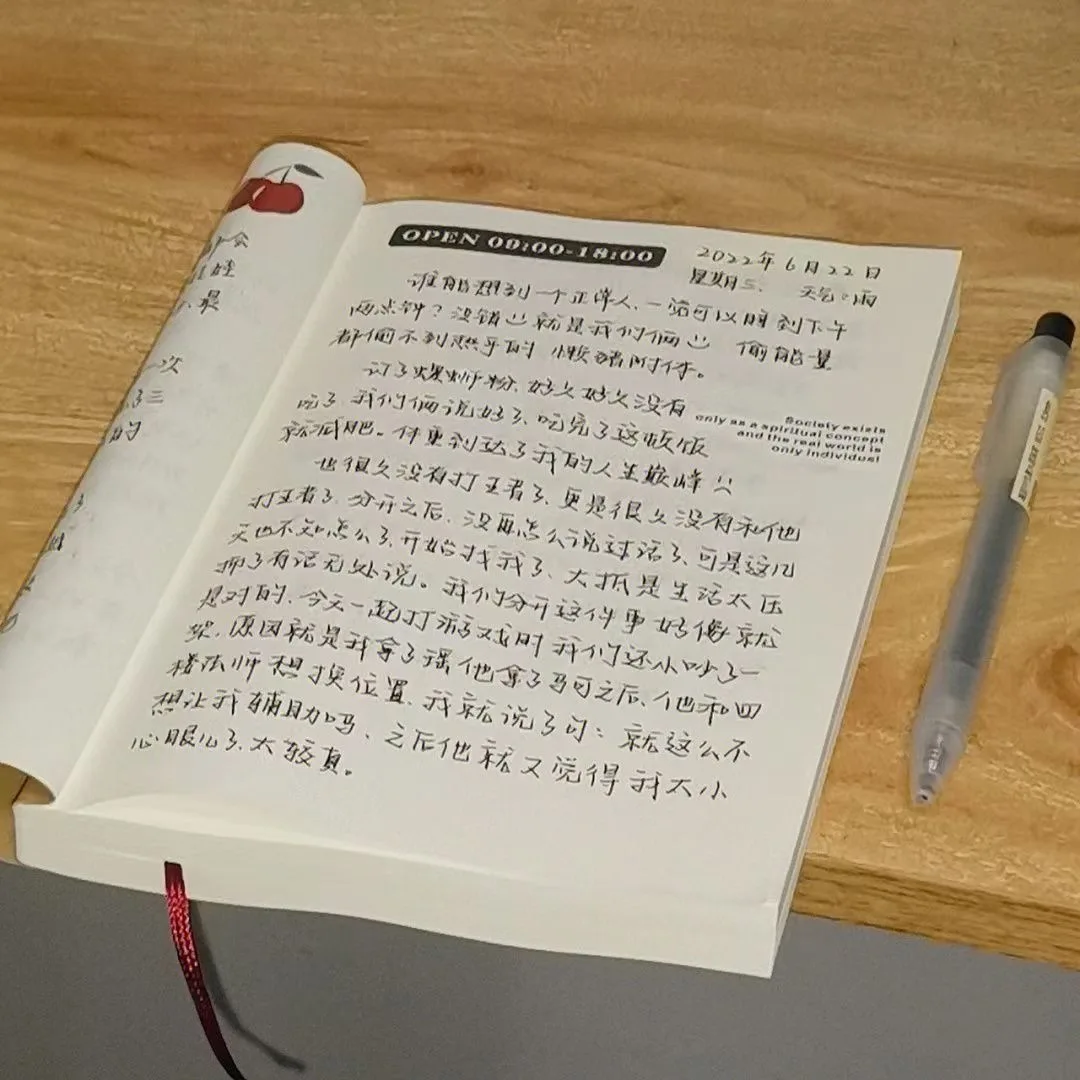 OPEN 09:00-18:00
2022年6月22日
星期三、 天气:雨
谁能想到一个正常人、一觉可以睡到下午
两点钟?没错就是我们俩 偷能量
都偷不到 懒猪附体。
订了螺蛳粉、好久好久没有
吃了、我们俩说好了、吃完了这顿饭
就减肥。体重到达了我的人生巅峰
Society exists
only as a spiritual concept
and the real world is
only individual
也很久没有打王者了、更是很久没有和他
打王者了、分开之后、没再怎么说过话了、可是这几
天也不知怎么了、开始找我了、大抵是生活太压
抑了有话无处说。我们分开这件事好像就
是对的、今天一起打游戏时我们还小吵了一
架、原因就是我拿了瑶他拿了马可之后、他和四
楼法师想换位置、我就说了句:就这么不
想让我辅助吗、之后他就又说得我太小
心眼儿了、太较真。
会
娃
、最
一次
了三
的